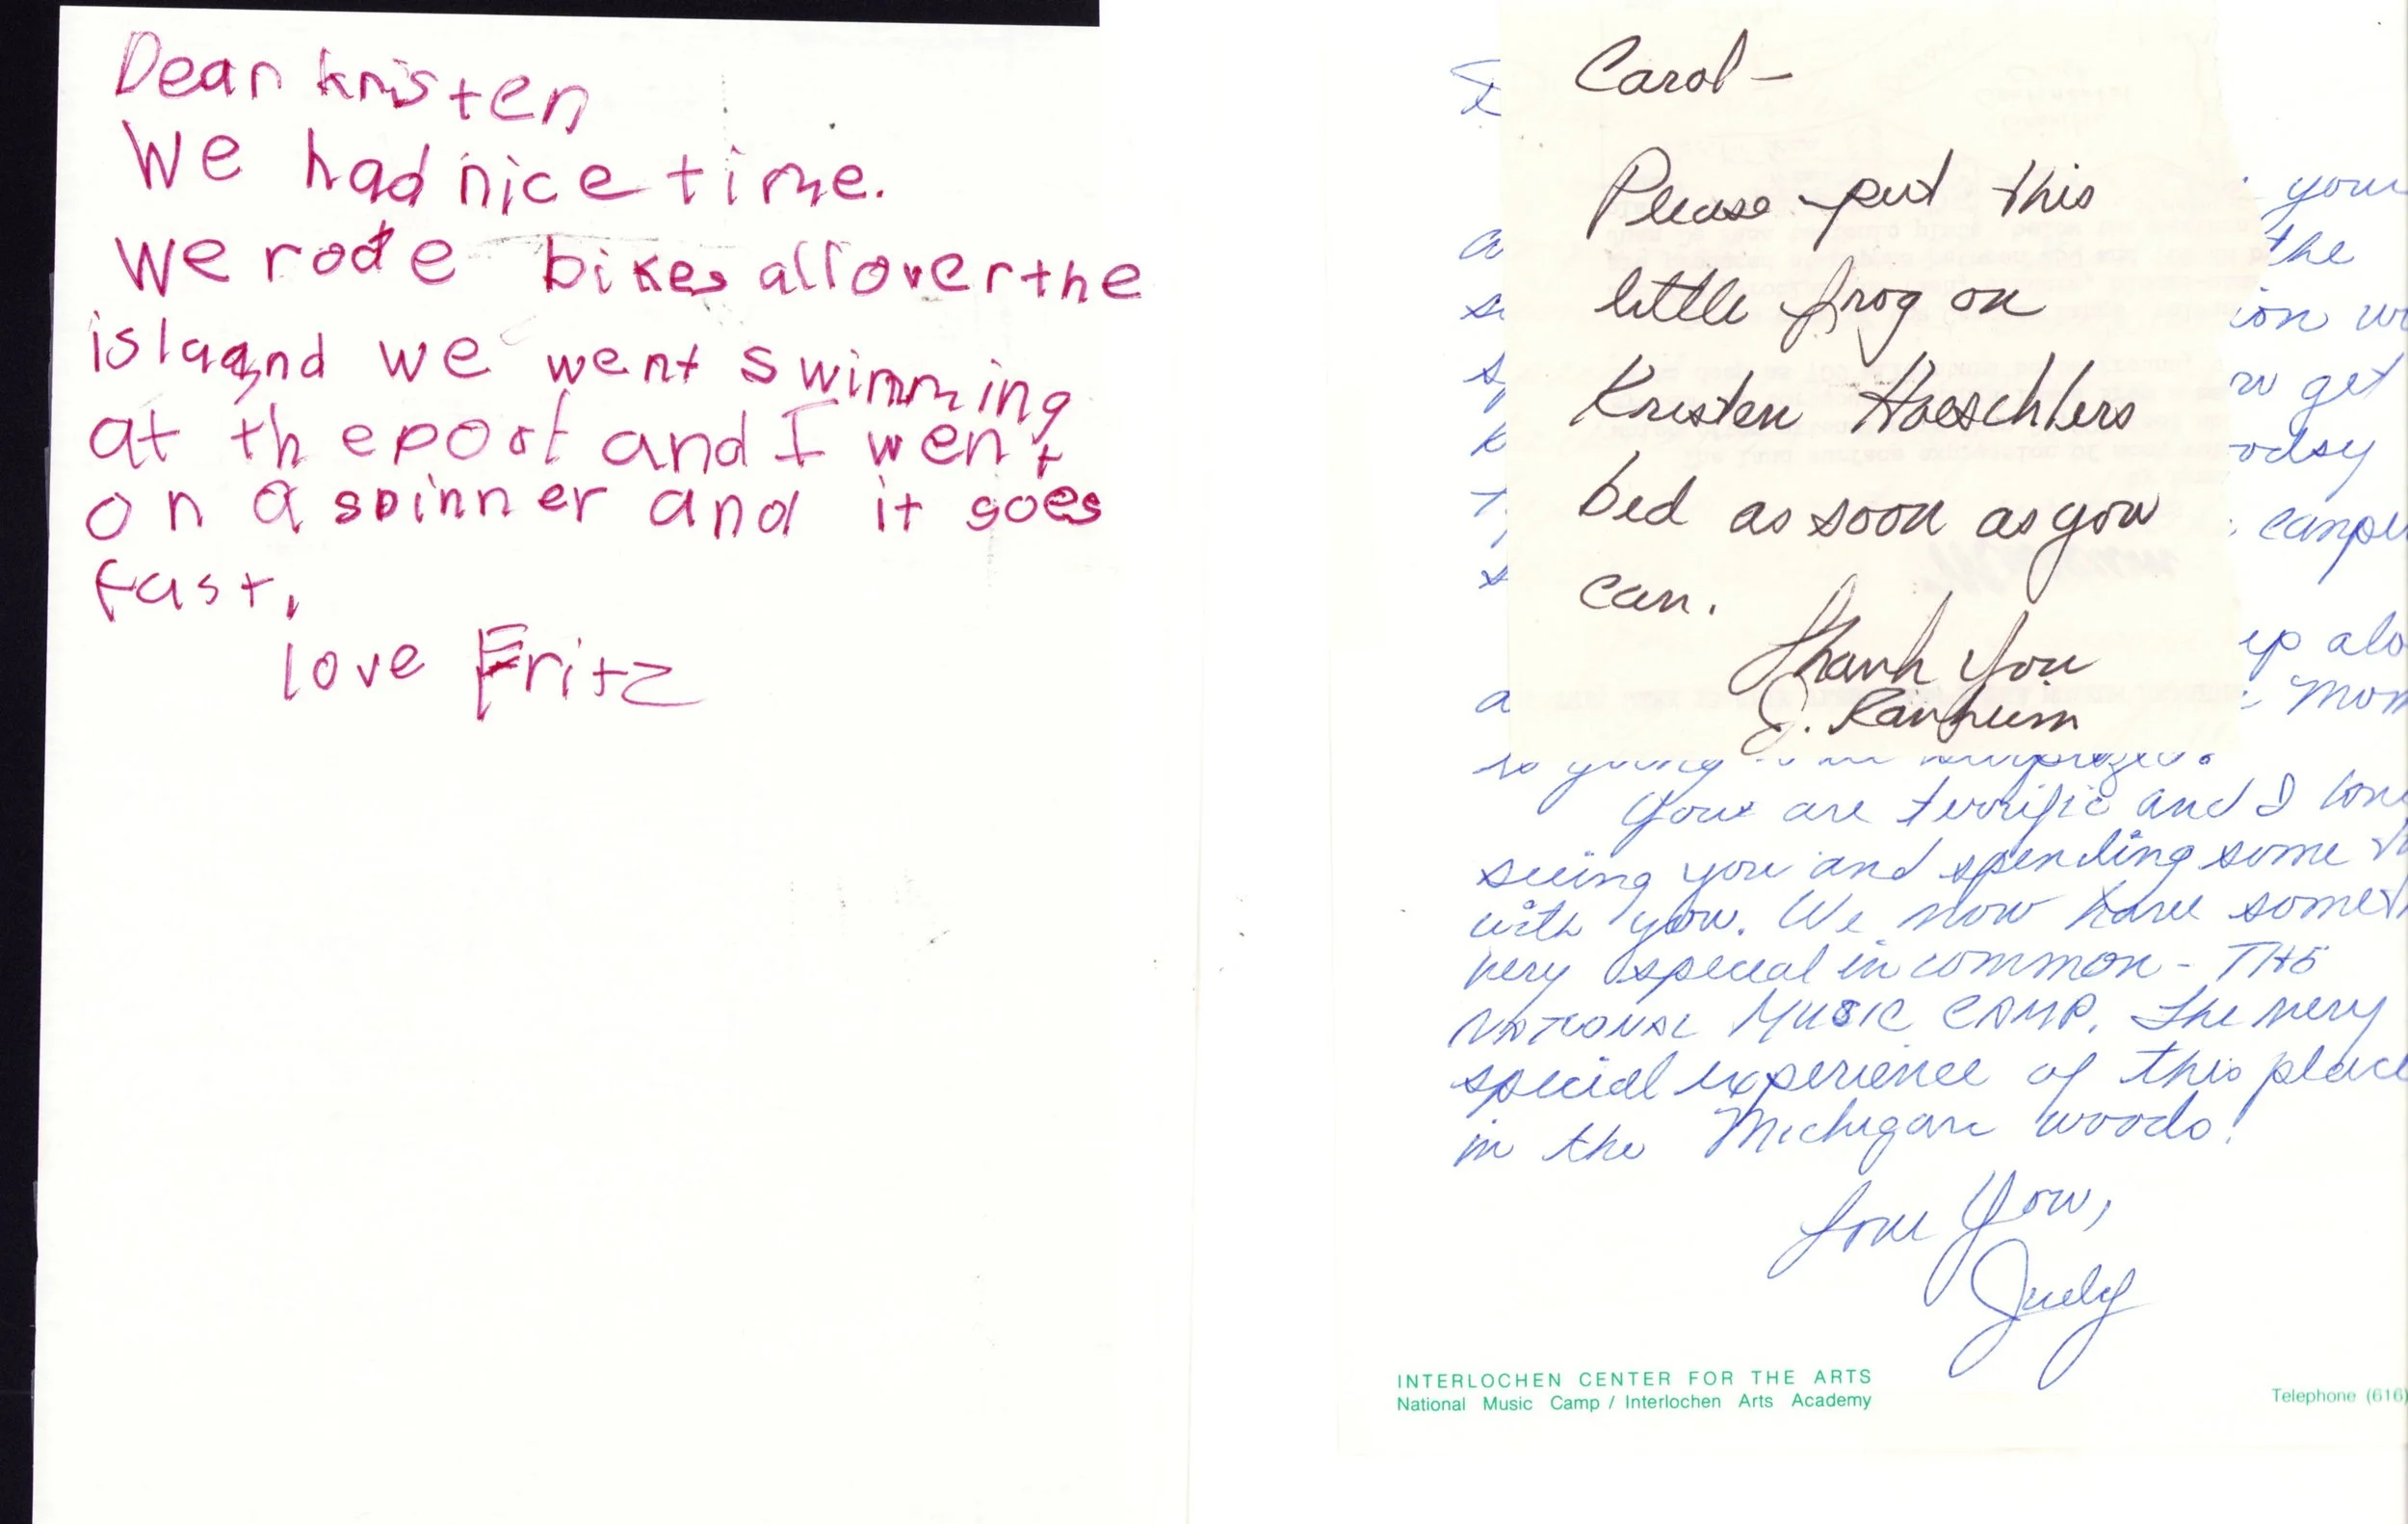 Dear kristen
We had nice time.
We rode bikes all over the
island we went swimming
at the poot and I went
on a spinner and it goes
fast,
love Fritz
Carol-
Please put this
little frog on
Kristen Haeschlers
bed as soon as you
can.
Thank You
J. Ranheim
your
the
get
You are terrific and I
seeing you and spending some
with you. We now have
very special in common - THE
NATIONAL MUSIC CAMP. The very
special experience of this place
in the Michigan woods!
Love You,
Judy
INTERLOCHEN CENTER FOR THE ARTS
National Music Camp / Interlochen Arts Academy
Telephone (616)